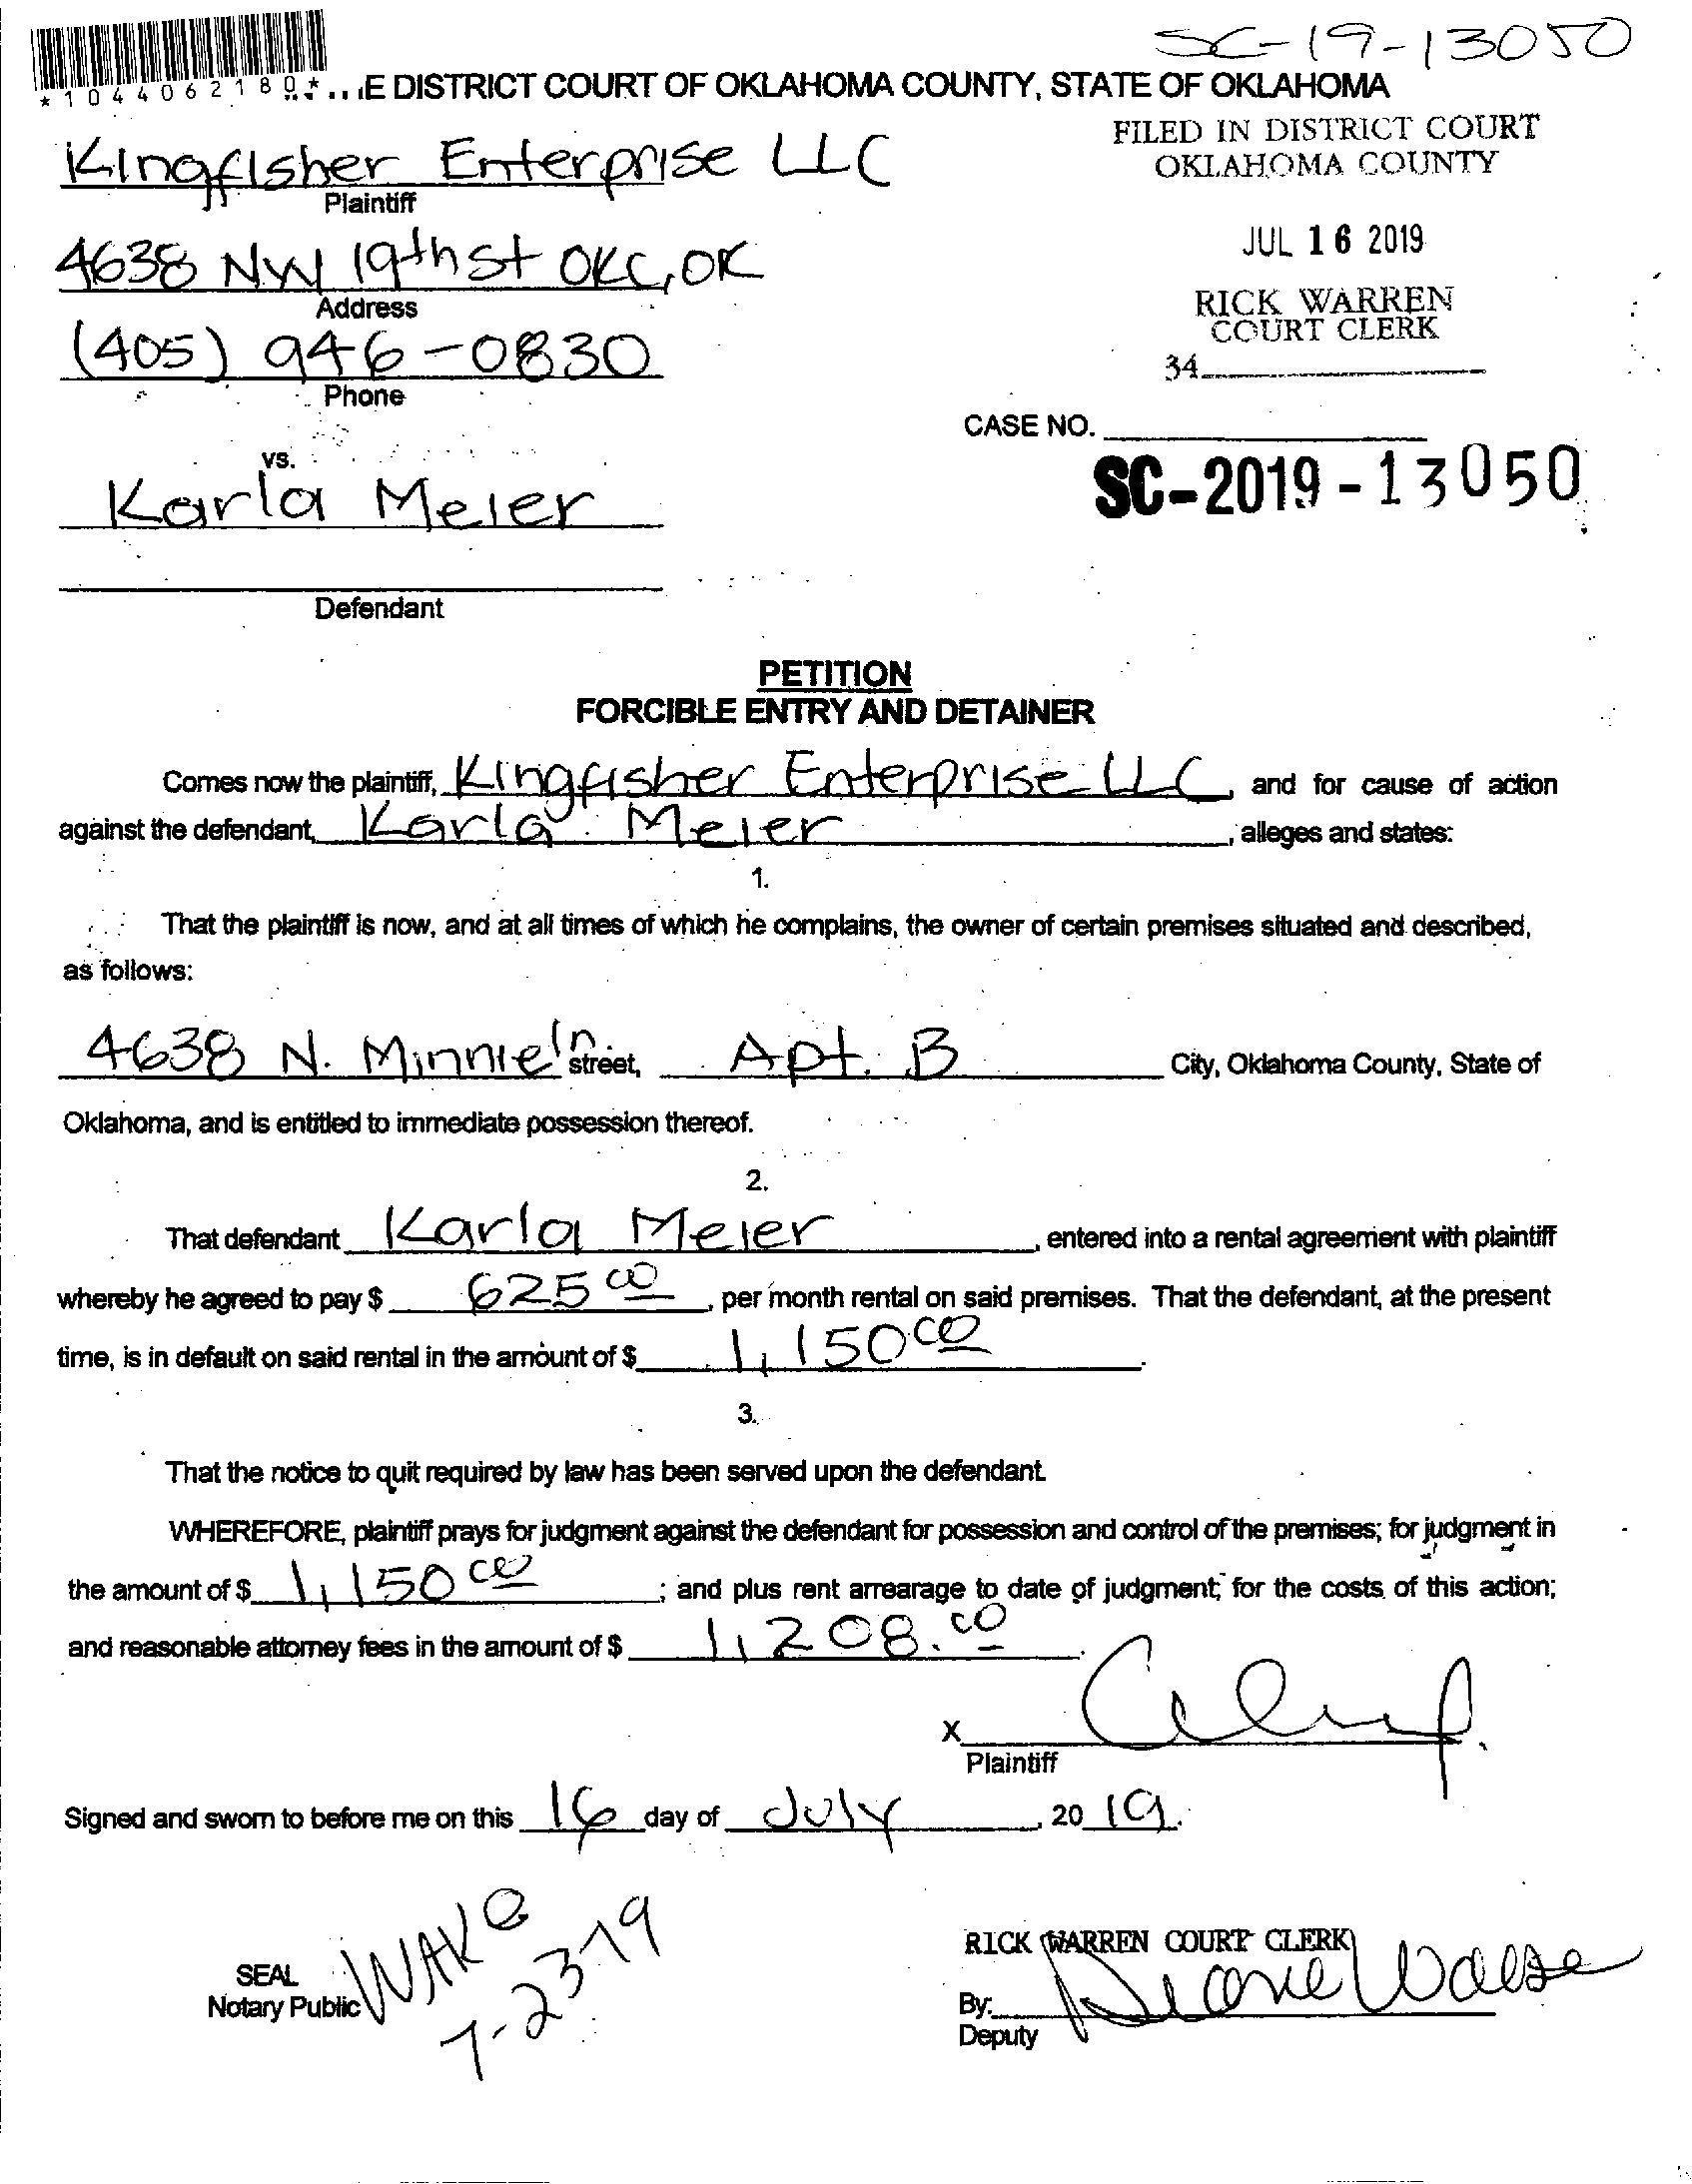 SC-19-13050
*1044062180*
E DISTRICT COURT OF OKLAHOMA COUNTY, STATE OF OKLAHOMA
FILED IN DISTRICT COURT
OKLAHOMA COUNTY
Kingfisher Enterprise LLC
Plaintiff
JUL 16 2019
4638 NW 19th St OKC, OK
Address
RICK WARREN
COURT CLERK
(405) 946-0830
34
Phone
CASE NO.
SC-2019-13050
vs.
Karla Meier
Defendant
PETITION
FORCIBLE ENTRY AND DETAINER
Comes now the plaintiff, Kingfisher Enterprise LLC, and for cause of action
against the defendant, Karla Meier, alleges and states:
1.
That the plaintiff is now, and at all times of which he complains, the owner of certain premises situated and described,
as follows:
4638 N. Minnie ln street, Apt. B City, Oklahoma County, State of
Oklahoma, and is entitled to immediate possession thereof.
2.
That defendant Karla Meier, entered into a rental agreement with plaintiff
whereby he agreed to pay $ 625 00, per month rental on said premises. That the defendant, at the present
time, is in default on said rental in the amount of $ 1,150 00.
3.
That the notice to quit required by law has been served upon the defendant.
WHEREFORE, plaintiff prays for judgment against the defendant for possession and control of the premises; for judgment in
the amount of $ 1,150 00; and plus rent arrearage to date of judgment; for the costs of this action;
and reasonable attorney fees in the amount of $ 1,208.00.
X
Plaintiff
Signed and sworn to before me on this 16 day of July, 2019.
SEAL
Notary Public
7-23-19
RICK WARREN COURT CLERK
By:
Deputy